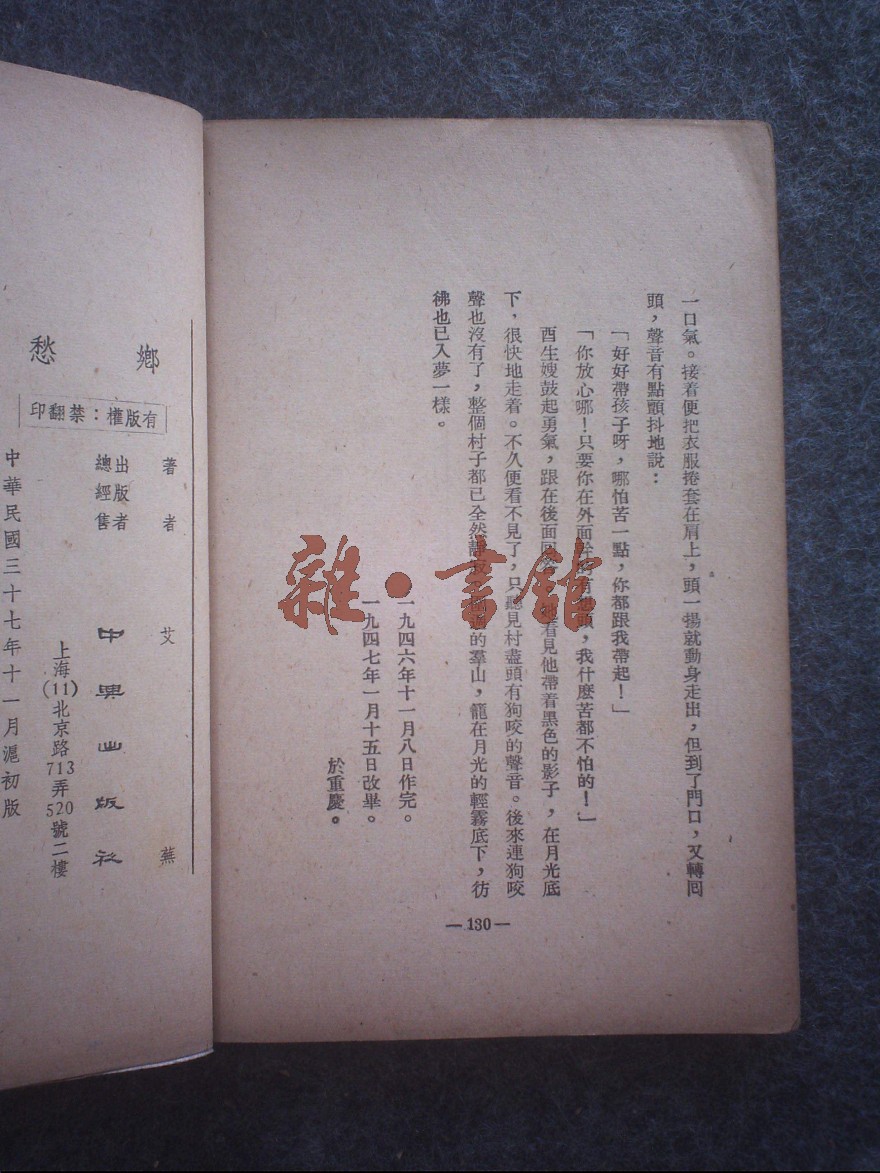 一口氣。接着便把衣服捲套在肩上，頭一揚就動身走出，但到了門口，又轉囘
頭，聲音有點顫抖地說：
「好好帶孩子呀，哪怕苦一點，你都跟我帶起！」
「你放心哪！只要你在外面有頭，我什麼苦都不怕的！」
酉生嫂鼓起勇氣，跟在後面看見他帶着黑色的影子，在月光底
下，很快地走着。不久便看不見了，只聽見村盡頭有狗咬的聲音。後來連狗咬
聲也沒有了，整個村子都已全然靜的羣山，籠在月光的輕霧底下，彷
彿也已入夢一樣。
一九四六年十一月八日作完。
一九四七年一月十五日改畢。
於重慶。
—130—
鄉愁
有版權：禁翻印
著者 艾蕪
出版者
總經售
中興出版社
上海(11)北京路713弄520號二樓
中華民國三十七年十一月滬初版
雜·書館